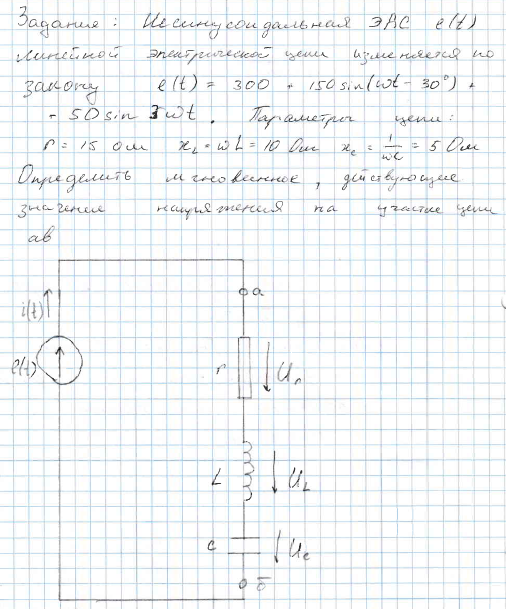 Задание: Несинусоидальная ЭДС e(t)
линейной электрической цепи изменяется по
закону e(t) = 300 + 150 sin(ωt - 30°) +
+ 50 sin 3ωt. Параметры цепи:
r = 15 Ом x_L = ωL = 10 Ом x_c = 1/ωC = 5 Ом
Определить мгновенное, действующие
значение напряжения на участке цепи
ab
i(t)
a
e(t)
r
U_r
L
U_L
c
U_c
б